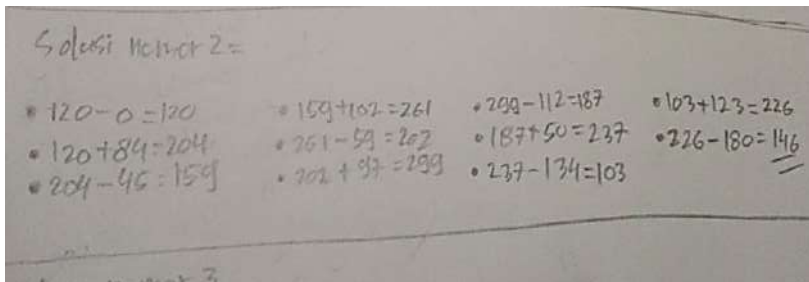 Solusi Nomor 2=
• 120-0=120
• 120+84=204
• 204-45=159
• 159+102=261
• 261-59=202
• 202+97=299
• 299-112=187
• 187+50=237
• 237-134=103
• 103+123=226
• 226-180=146
3